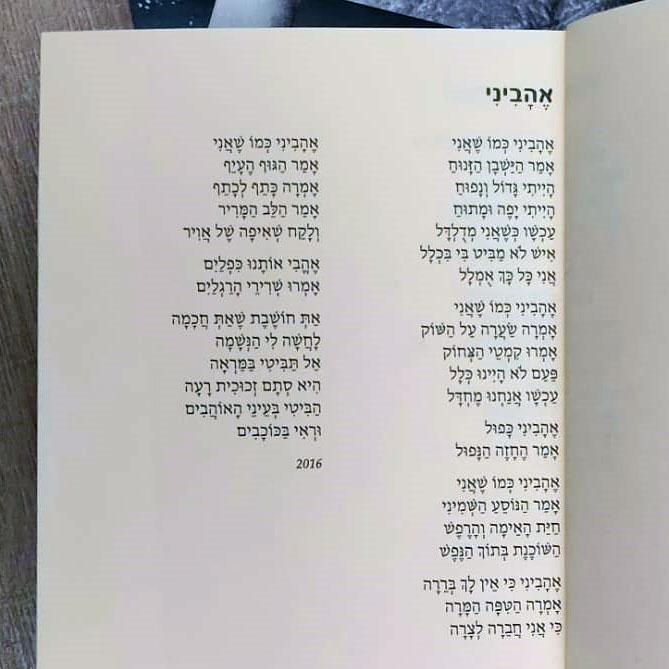 אֶהָבִינִי
אֶהָבִינִי כְּמוֹ שֶׁאֲנִי
אָמַר הַיַּשְׁבָן הַזָּנוּחַ
הָיִיתִי גָּדוֹל וְנָפוּחַ
הָיִיתִי יָפֶה וּמָתוּחַ
עַכְשָׁו כְּשֶׁאֲנִי מְדֻלְדָּל
אִישׁ לֹא מַבִּיט בִּי בִּכְלָל
אֲנִי כָּל כָּךְ אֻמְלָל
אֶהָבִינִי כְּמוֹ שֶׁאֲנִי
אָמְרָה שַׂעֲרָה עַל הַשּׁוֹק
אָמְרוּ קִמְטֵי הַצְּחוֹק
פַּעַם לֹא הָיִינוּ כְּלָל
עַכְשָׁו אֲנַחְנוּ מֶחְדָּל
אֶהָבִינִי כָּפוּל
אָמַר הֶחָזֶה הַנָּפוּל
אֶהָבִינִי כְּמוֹ שֶׁאֲנִי
אָמַר הַנּוֹסֵעַ הַשְּׁמִינִי
חַיַּת הָאֵימָה וְהָרֶפֶשׁ
הַשּׁוֹכֶנֶת בְּתוֹךְ הַנֶּפֶשׁ
אֶהָבִינִי כִּי אֵין לָךְ בְּרֵרָה
אָמְרָה הַטִּפָּה הַמָּרָה
כִּי אֲנִי חֲבֵרָה לְצָרָה
אֶהָבִינִי כְּמוֹ שֶׁאֲנִי
אָמַר הַגּוּף הֶעָיֵף
אָמְרָה כָּתֵף לְכָתֵף
אָמַר הַלֵּב הַמָּרִיר
וְלָקַח שְׁאִיפָה שֶׁל אֲוִיר
אֶהֱבִי אוֹתָנוּ כִּפְלַיִם
אָמְרוּ שְׁרִירֵי הָרַגְלַיִם
אַתְּ חוֹשֶׁבֶת שֶׁאַתְּ חֲכָמָה
לָחֲשָׁה לִי הַנְּשָׁמָה
אַל תַּבִּיטִי בַּמַּרְאָה
הִיא סְתָם זְכוּכִית רָעָה
הַבִּיטִי בְּעֵינֵי הָאוֹהֲבִים
וּרְאִי בַּכּוֹכָבִים
2016